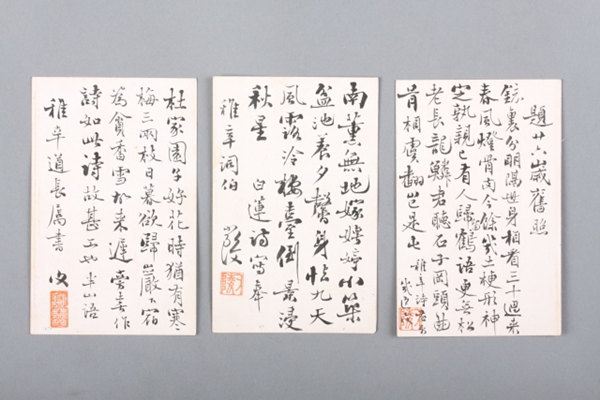 題廿六歲舊照
鏡裏分明隔世身相看三十過來
春風燈宵尚今餘幾土梗形神
定孰親已有人歸鶴語更無松
老長龍鱗君聽石子岡頭曲
肯相虞翻豈是屯
稚辛詩
南薰無地嫁娉婷小築
盆池養夕馨身怯九天
風露冷樓臺倒景浸
秋星 白蓮詩寫奉
稚辛詞伯
杜家園子好花時猶有寒
梅三兩枝日暮欲歸巖下宿
為貪香雪故來遲 喜作
詩如此詩故甚工也 半山語
稚辛道長屬書